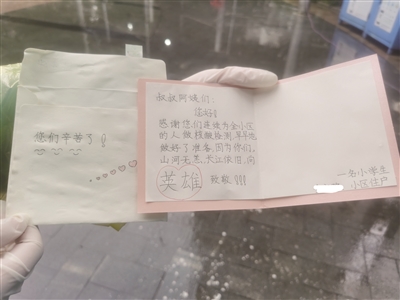 您们辛苦了!
叔叔阿姨们:
您好!
感谢您们连续为全小区
的人做核酸检测,早早地
做好了准备,因为你们,
山河无恙,长江依旧,向
英雄 致敬!!!
一名小学生
小区住户